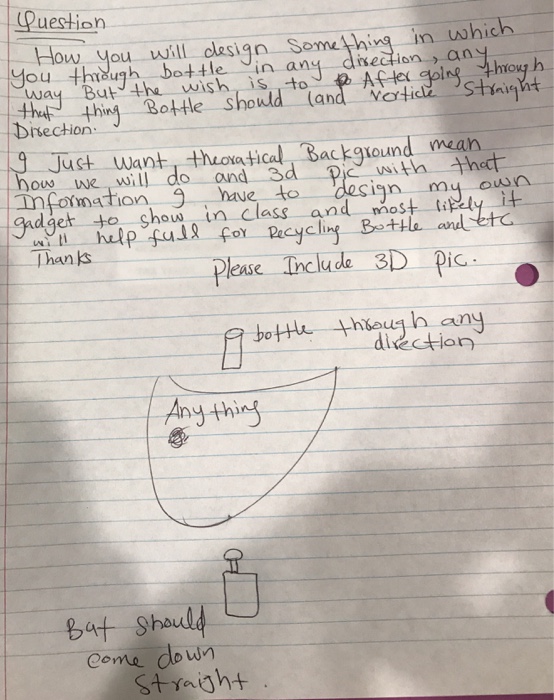 Question
How you will design Something in which
you through bottle in any direction, any
way But the wish is to After going through
that thing Bottle should land Verticle Straight
Direction.
I Just want theoratical Background mean
how we will do and 3d pic with that
Information I have to design my own
gadget to show in class and most likely it
will help full for Recycling Bottle and etc
Thanks
Please Include 3D pic.
bottle through any
direction
Any thing
But should
come down
straight.